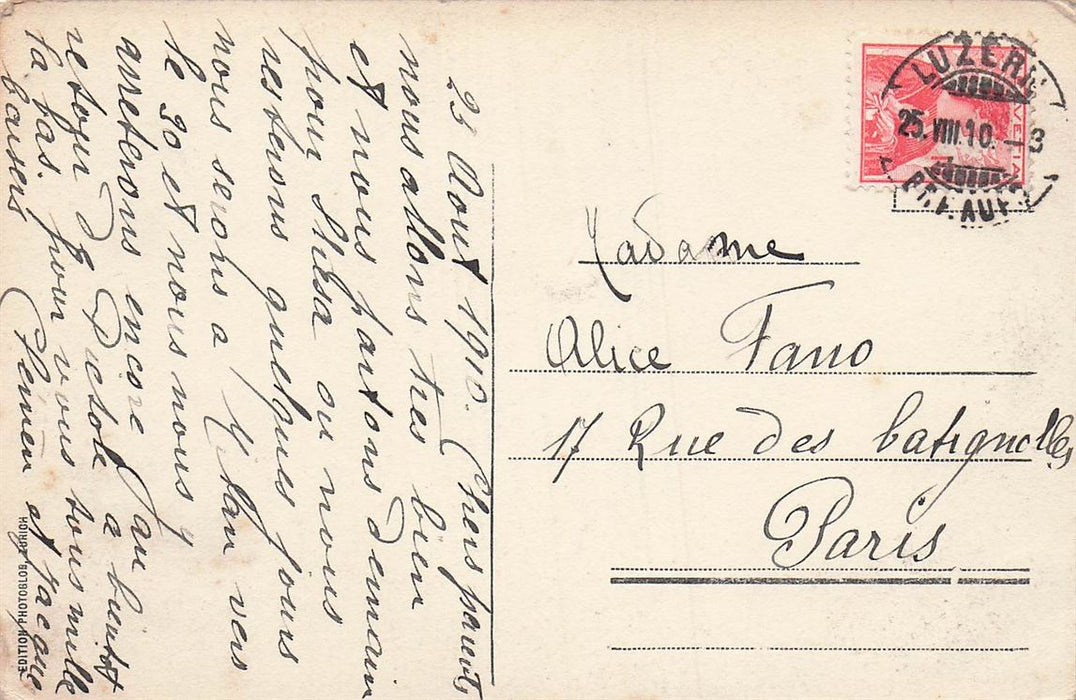 25 Aout 1910. Chers parents
nous allons tres bien
et nous partons demain
pour Stresa ou nous
resterons quelques jours
nous serons a Milan vers
le 30 et nous nous y
arreterons encore au
retour a bientot
la bas. pour vous tous mille
baisers et Jacque
EDITION PHOTOGLOB ZURICH
LUZERN
25.VIII.10.-3
Madame
Alice Fano
17 Rue des batignolles
Paris